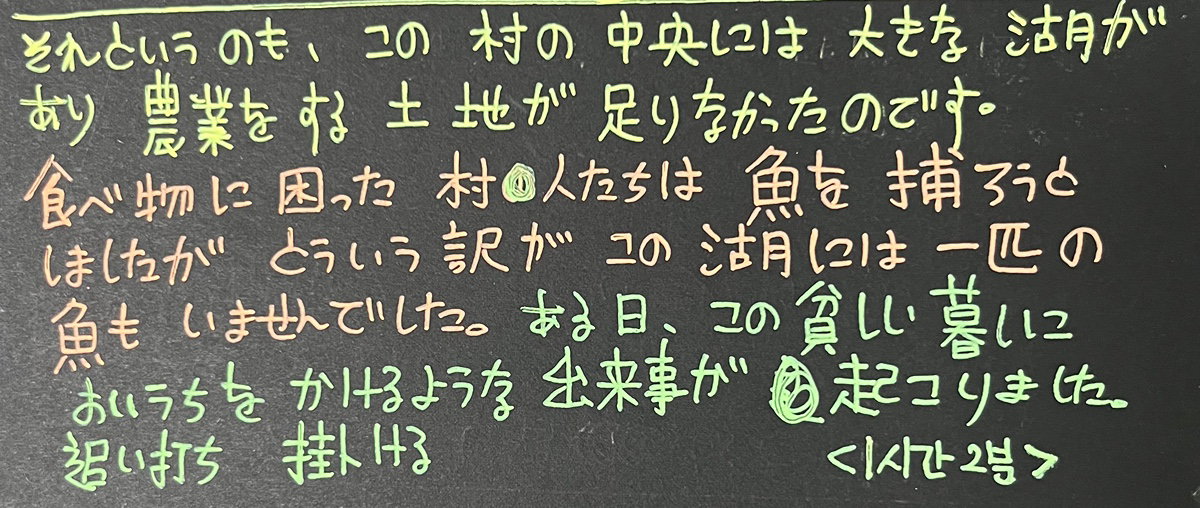 それというのも、この 村の 中央には 大きな 湖が
あり 農業を する 土 地が 足りなかったのです。
食べ物に 困った 村 人たちは 魚を 捕ろうと
しましたが どういう 訳が この 湖には 一匹の
魚も いませんでした。ある日、この 貧しい 暮しに
おいうちを かけるような 出来事が 起こりました。
追い打ち 掛ける <1시간 2분>